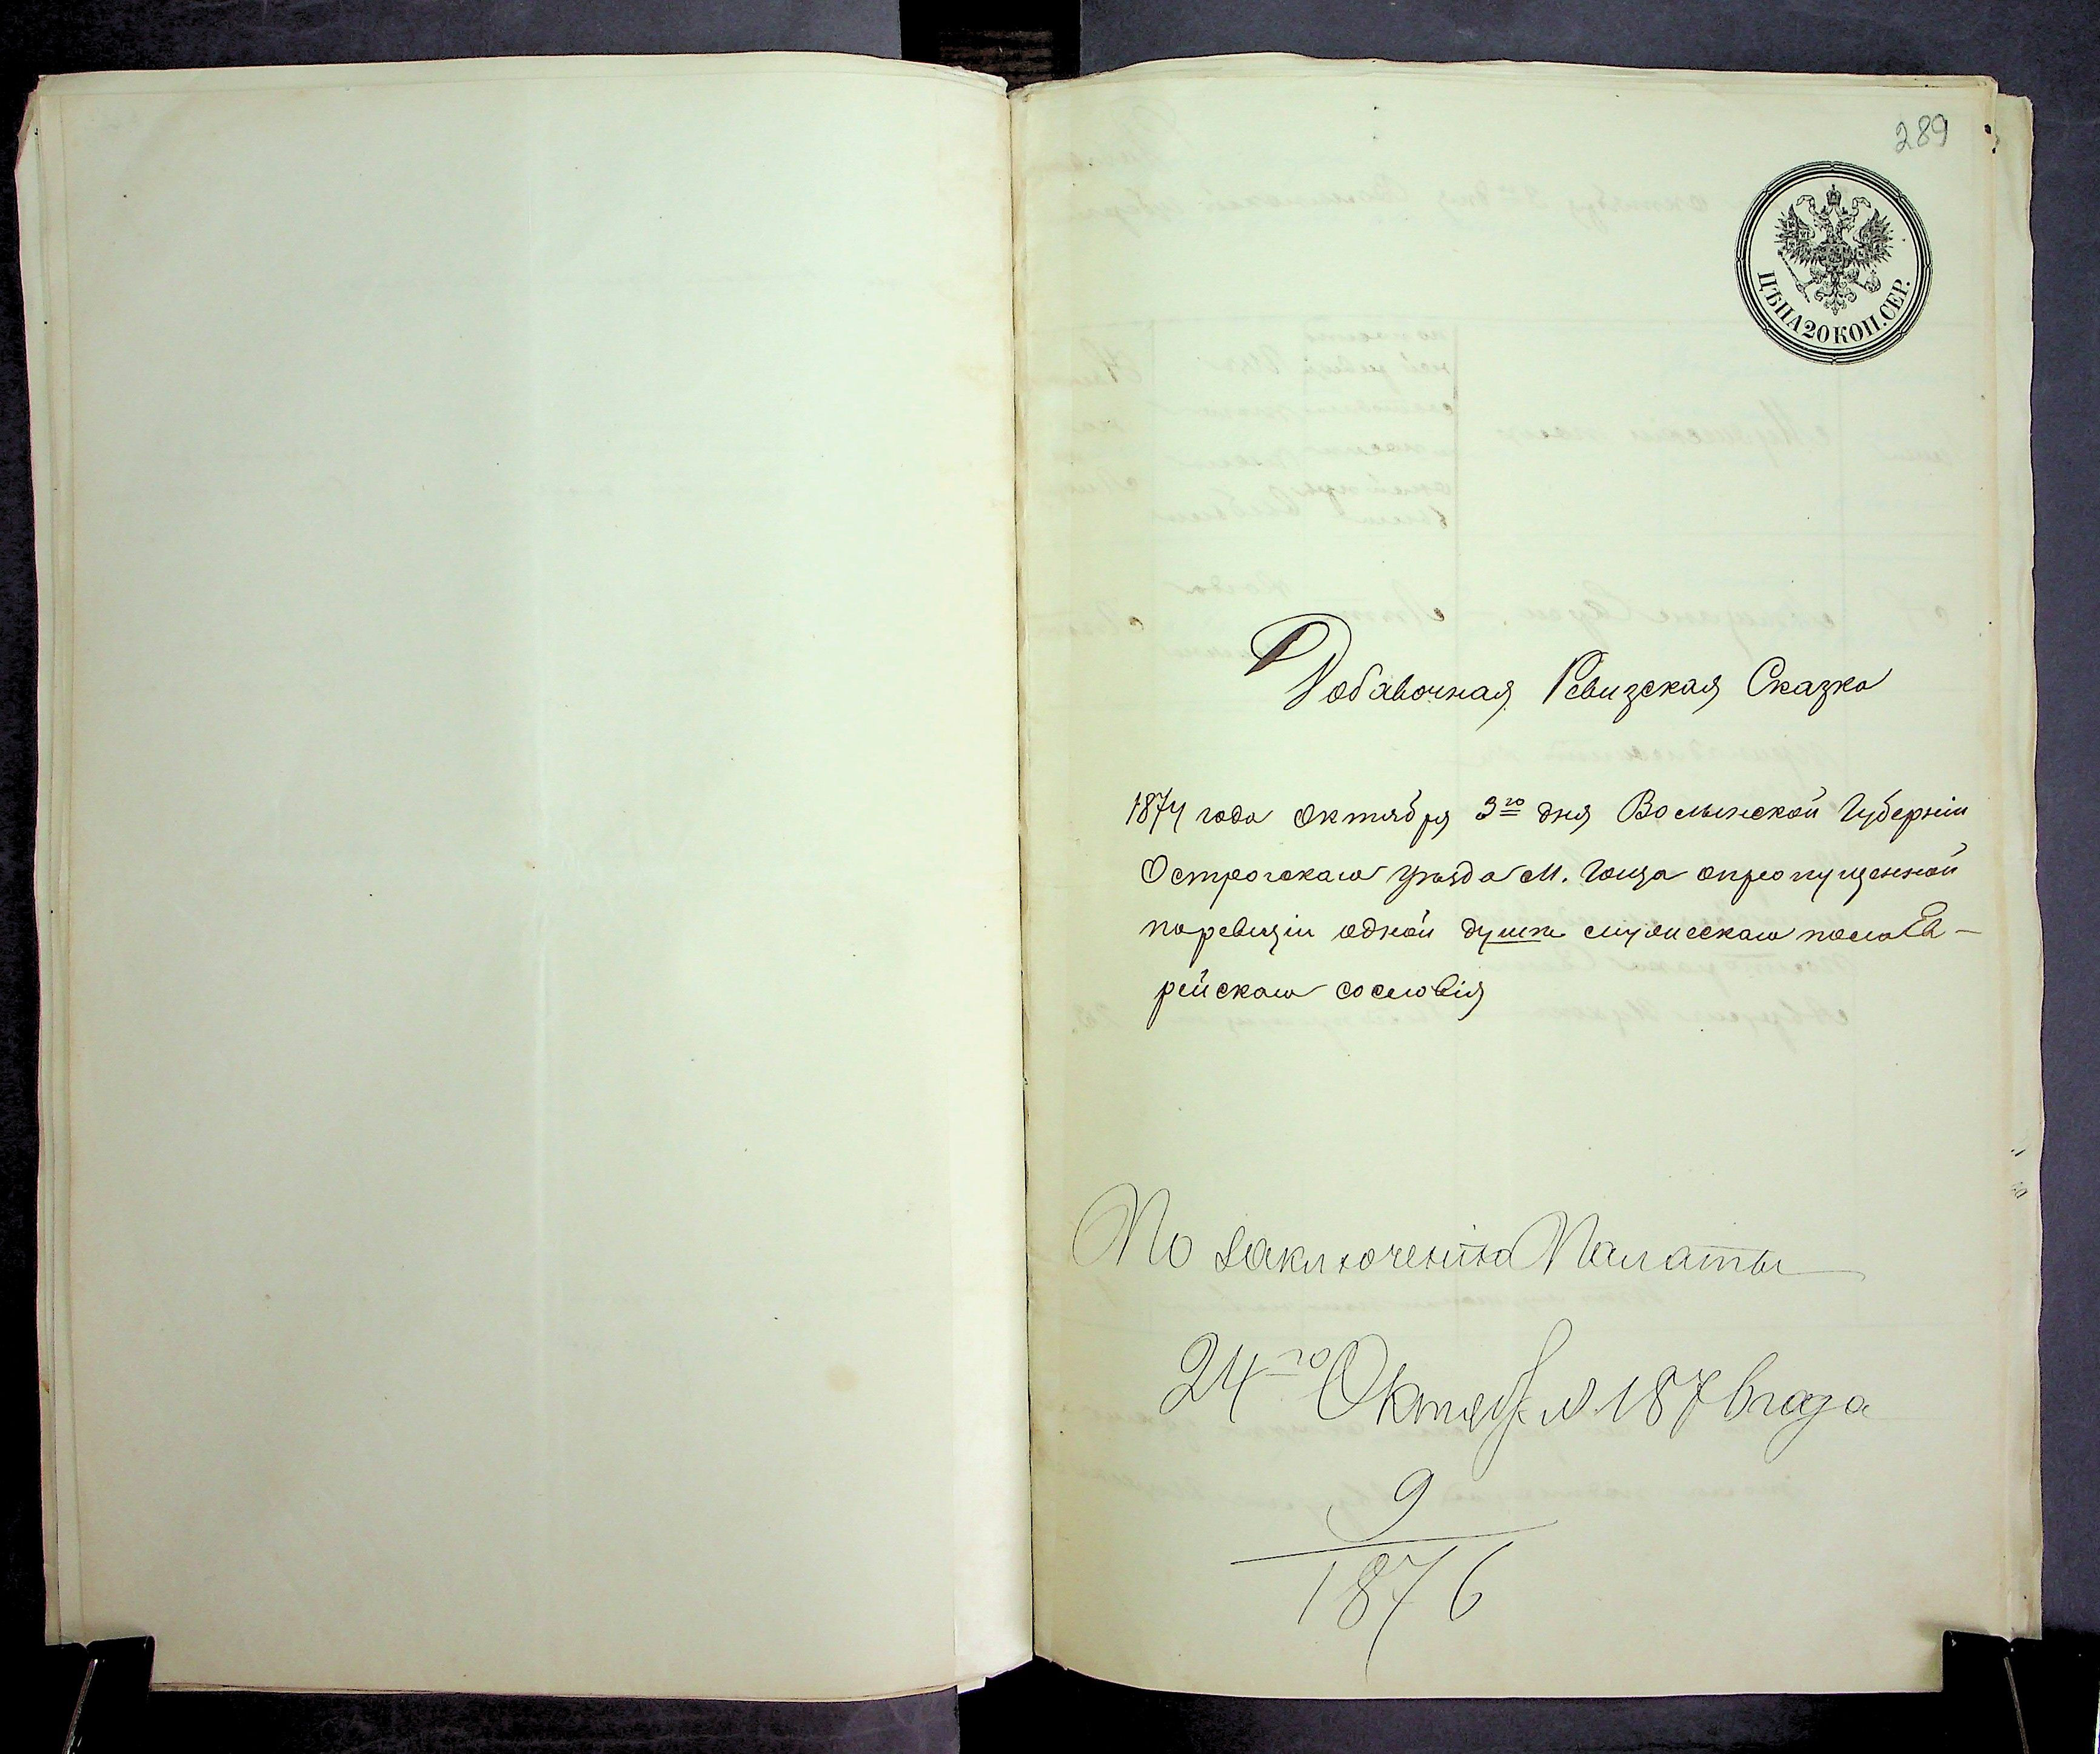 289
ЦѢНА 20 КОП. СЕР.
Добавочная Ревизская Сказка
1874 года Октября 3го дня Волынской Губерніи
Острогскаго уѣзда М. Гоща опропущенной
поревизіи одной душѣ мужескаго пола Ев-
рейскаго сословія
По заключенію Палаты
24го Октября 1876 года
9
1876